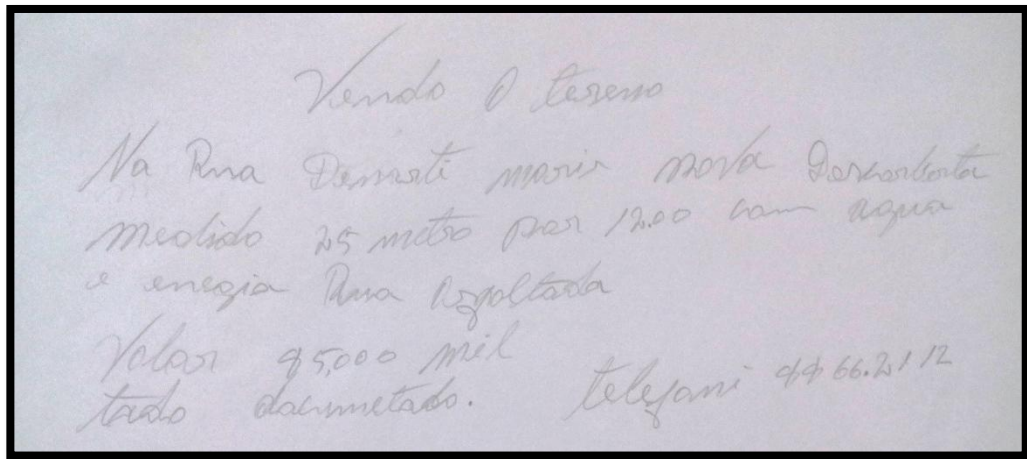 Vendo O tereno
Na Rua maris nova Descorberta
medido 25 metro por 12.00 com agua
e enegia Rua asfaltada
Valor 95,000 mil
tado documetado. telefani 9966.2112